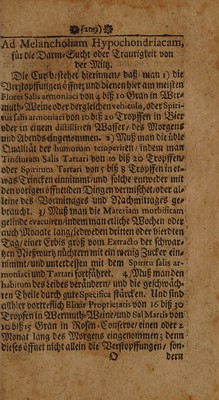 (209)
Ad Melancholiam Hypochondriacam,
für die Darm-Sucht oder Traurigkeit von
der Miltz.
Die Cur bestehet hierinnen/ daß man 1) die
Verstopffungen öffnet und dienen hier am meisten
Flores Salis armoniaci von 4 biß 10 Gran in Wer-
muth-Weine oder dergleichen vehiculo, oder Spiri-
tus salis armoniaci von 10 biß 20 Tropffen in Bier
oder in einem distillirten Wasser/ des Morgens
und Abends eingenommen. 2) Muß man die üble
Qualität der humorum temperiren/ indem man
Tincturam Salis Tartari von 10 biß 20 Tropffen/
oder Spiritum Tartari von 3 biß 5 Tropffen in et-
was Trincken einnimmt/ und solche entweder mit
den vorigen öffnenden Dingen vermischet/ oder al-
leine des Vormittages und Nachmittages ge-
braucht. 3) Muß man die Materiam morbificam
gelinde evacuiren/ indem man etliche Wochen oder
auch Monate lang/ jedweden dritten oder vierdten
Tag/ einer Erbis groß vom Extracto der schwar-
tzen Nießwurtz nüchtern mit ein wenig Zucker ein-
nimmt/ und unterdessen mit dem Spiritu salis ar-
moniaci und Tartari fortfähret. 4) Muß man den
habitum des Leibes verändern/ und die geschwäch-
ten Theile durch gute Specifica stärcken. Und sind
allhier vortreflich Elixir Proprietatis von 16 biß 30
Tropffen in Wermuth-Weine/ und Sal Martis von
10 biß 15 Gran in Rosen-Conserve/ einen oder 2
Monat lang des Morgens eingenommen; denn
dieses öffnet nicht allein die Verstopffungen/ son-
O dern